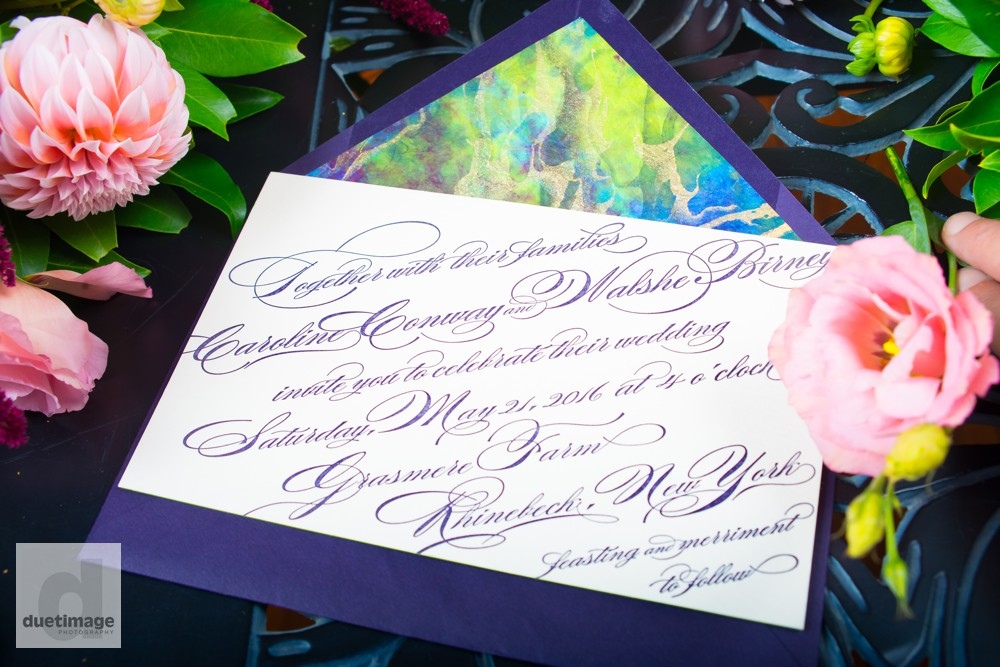 Together with their families
Caroline Conway and Walshe Birney
invite you to celebrate their wedding
Saturday, May 21, 2016 at 4 o'clock
Grasmere Farm
Rhinebeck, New York
feasting and merriment
to follow
d
duetimage
PHOTOGRAPHY